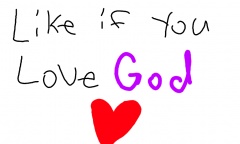 Like if you
Love God